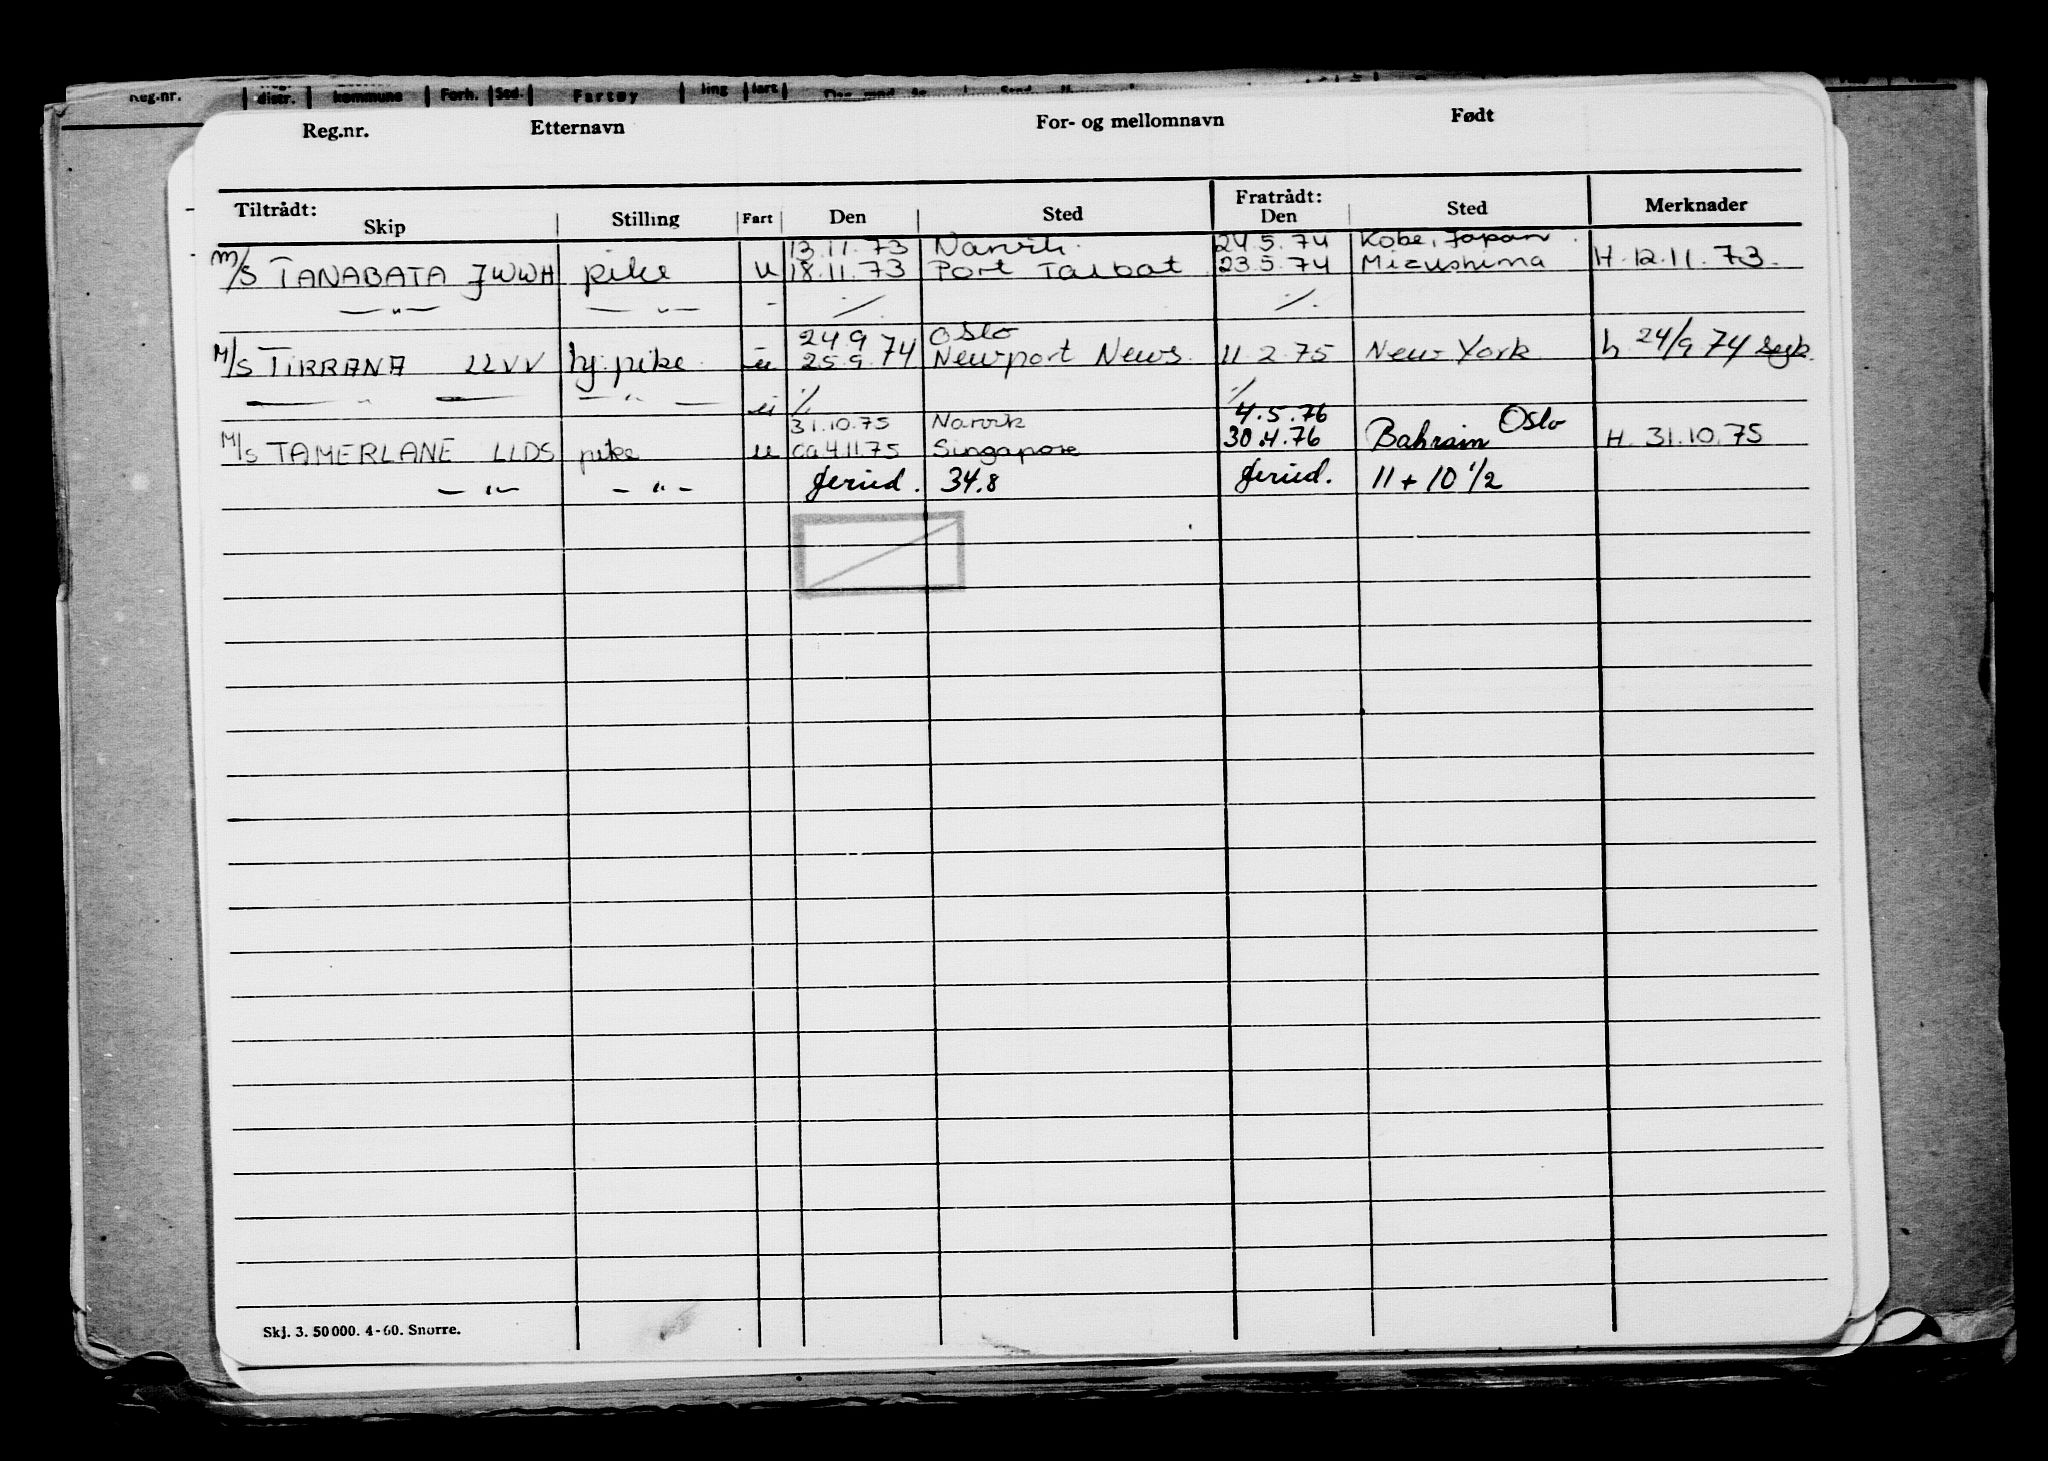 Reg.nr. distr. kommune Forh. Sed. Fartøy ling fart
Reg.nr. Etternavn For- og mellomnavn Født
Tiltrådt: Fratrådt:
Skip Stilling Fart Den Sted Den Sted Merknader
13.11.73 Narvik. 24.5.74 Kobe, Japan.
M/S TANABATA JWWH pike u 18.11.73 Port Talbot 23.5.74 Mizushima H. 12.11.73.
— " — — " — - ./. ./.
24 9 Oslo
M/S TIRRANA LLVV hj. pike. u 25.9.74 Newport News. 11 2.75 New York h 24/9 74
— " — — " — u ./. ./.
31.10.75 Narvik 4.5.76 Oslo
M/S TAMERLANE LLDS pike u ca 4.11.75 Singapore 30.4.76 Bahrain H. 31.10.75
— " — — " — 34.8 11 + 10 1/2
Skj. 3. 50 000. 4-60. Snorre.